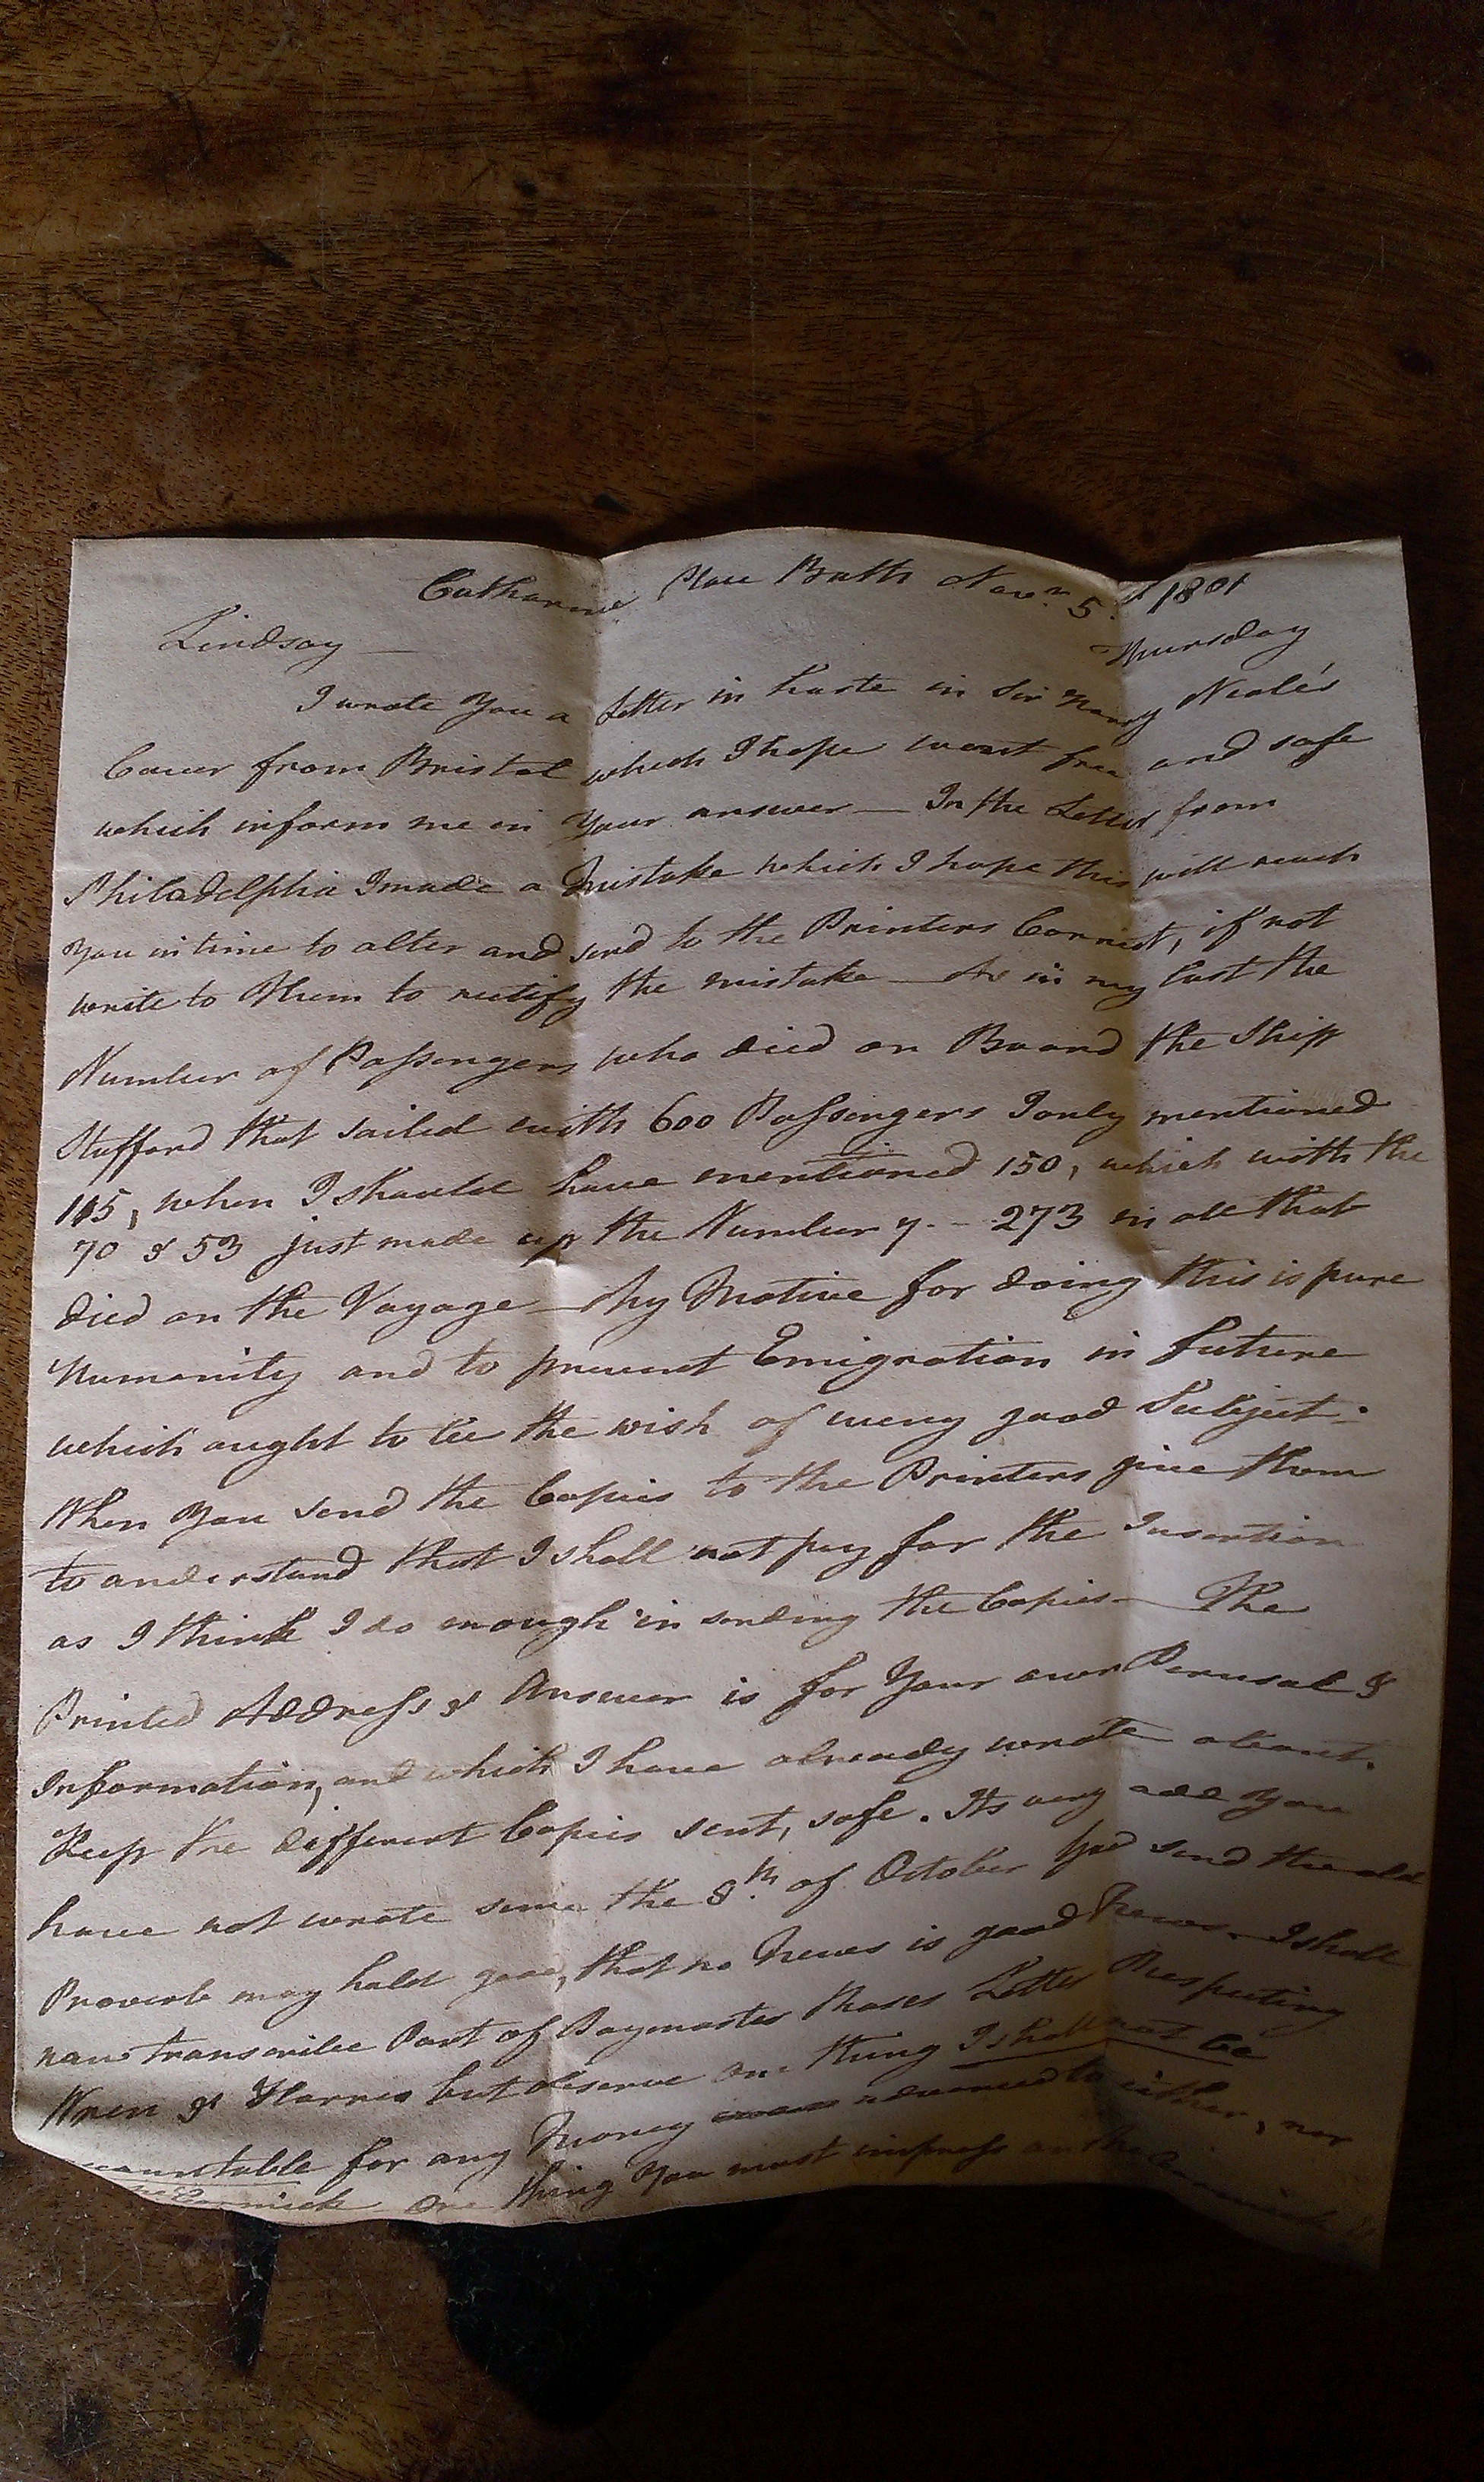 Catharine Place Bath Novr. 5th 1801
Thursday
Lindsay —
I wrote You a Letter in haste in Sir Harry Neale's
Cover from Bristol which I hope went free and safe
which inform me in Your answer — In the Letter from
Philadelphia I made a Mistake which I hope this will reach
You in time to alter and send to the Printers Correct, if not
write to them to rectify the mistake — As in my last the
Number of Passengers who died on Board the Ship
Stafford that sailed with 600 Passengers I only mentioned
105, when I should have mentioned 150, which with the
70 & 53 just made up the Number y. - 273 in all that
died on the Voyage — My Motive for doing this is pure
Humanity and to prevent Emigration in future
which ought to be the wish of every good Subject.
When You send the Copies to the Printers give them
to understand that I shall not pay for the Insertion
as I think I do enough in sending the Copies — The
Printed Address & Answer is for Your own Perusal &
Information, and which I have already wrote about.
Keep the different Copies sent, safe. Its very odd You
have not wrote since the 8th. of October God send the old
Proverb may hold good, that no News is good News. I shall
now transcribe Part of Paymaster Letter Respecting
Wren & Harris but observe one thing I shall not be
accountable for any Money advanced to either, nor
one thing You must impress on